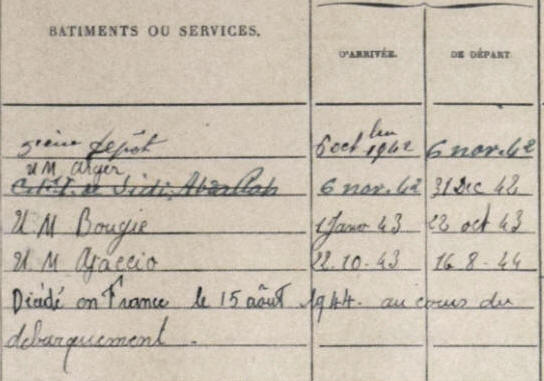 BATIMENTS OU SERVICES.
D'ARRIVÉE.
DE DÉPART
5ieme Depôt 6 octbre 1942 6 nov. 42
U M Alger
Sidi Abdallah 6 nov. 42 31 Dec 42
U M Bougie 1 Janv 43 22 oct 43
U M Ajaccio 22.10.43 16.8.44
Décédé en France le 15 août 1944. au cours du
debarquement.